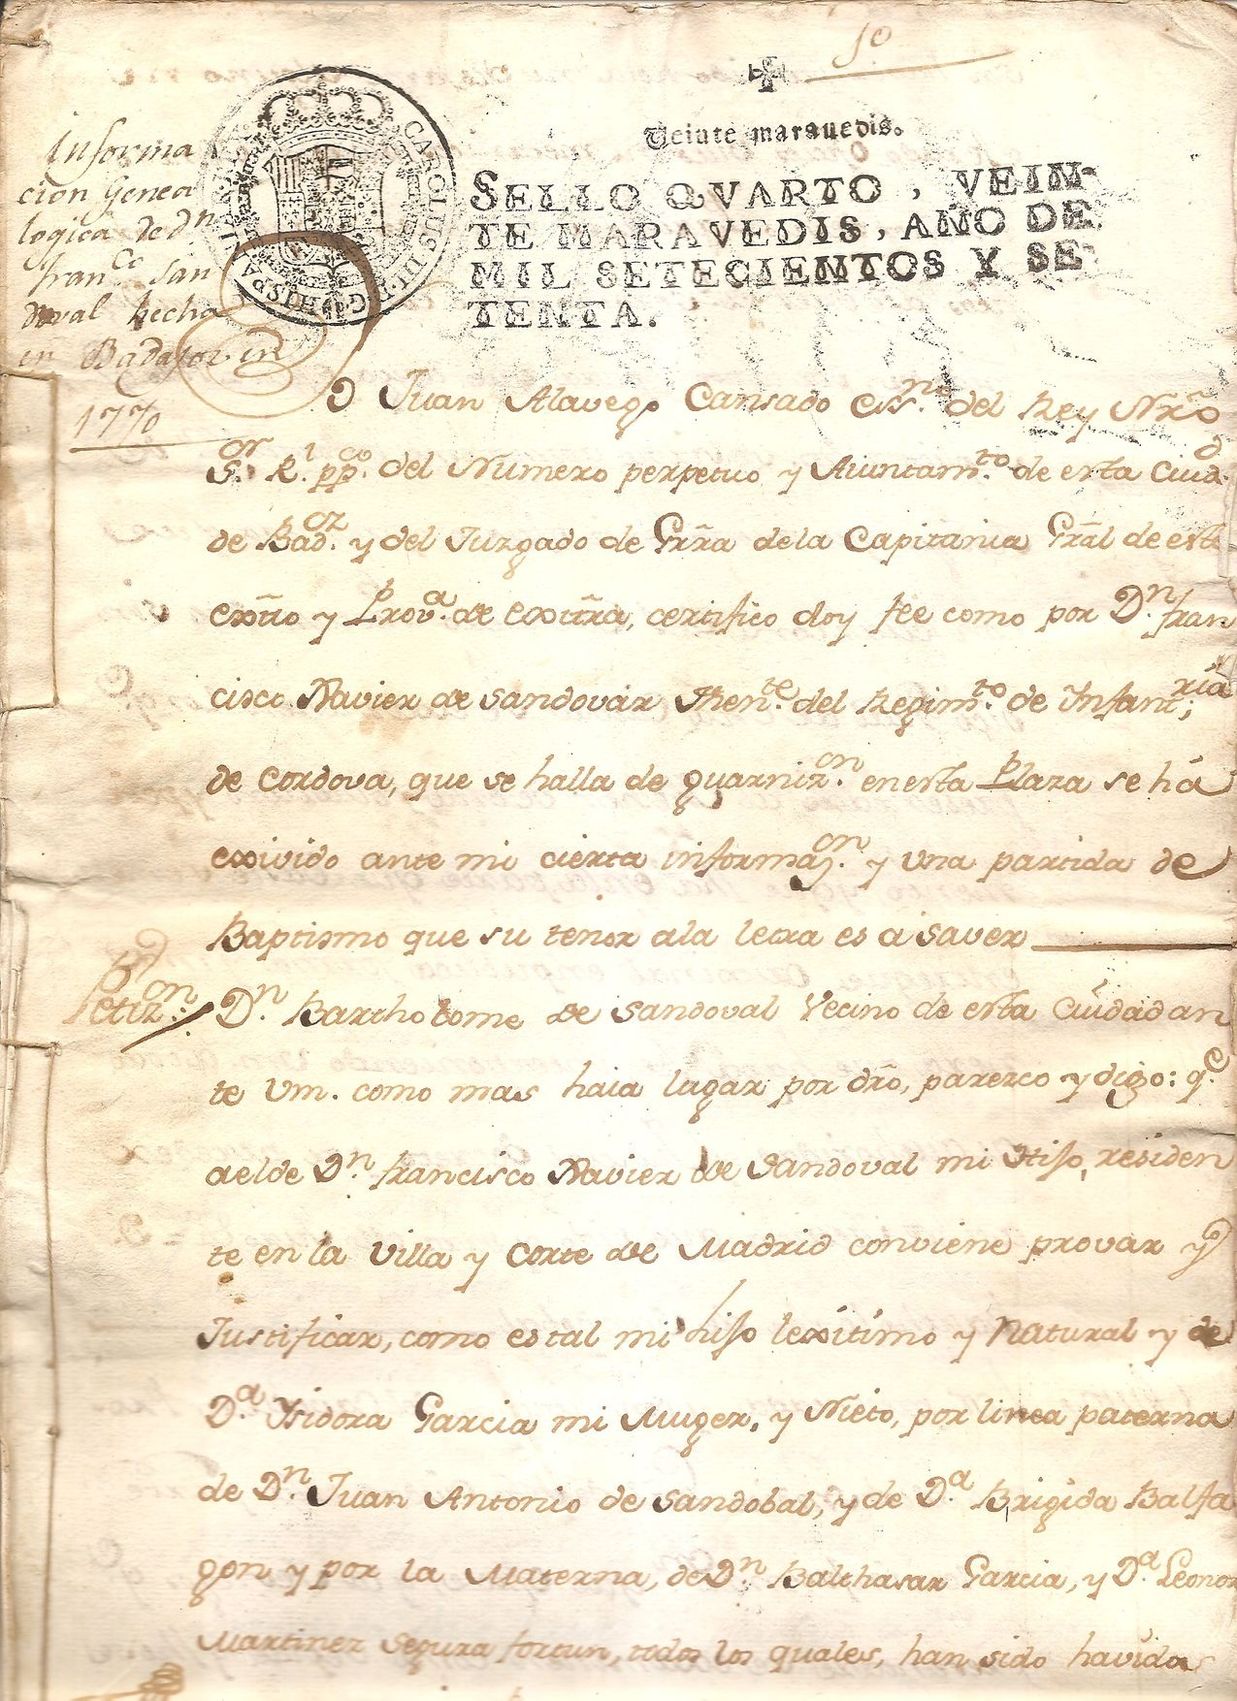 50
Veinte marauedis.
SELLO QVARTO, VEIN-
TE MARAVEDIS, AÑO DE
MIL SETECIENTOS Y SE-
TENTA.
CAROLUS III D G HISPANIAR
Informa
cion Genea
logica de dn
franco San
doval hecha
en Badajoz en
1770
Yo Juan Alavego Cansado essno. del Rey Nrõ
Sor. Rl. ppco. del Numero perpetuo y Aiuntamto. de esta Ciud.
de Badoz. y del Juzgado de Grr̃a dela Capitania Grãl de este
exto y Prova. de extrr̃a, certifico doy fee como por Dn. fran
cisco Xavier de Sandoval Thente. del Regimto. de Infantria;
de Cordova, que se halla de guarnizon. enesta Plaza se há
exivido ante mi cierta informazon. y una partida de
Baptismo que su tenor ala letra es á Saver
Petizon. Dn. Bartholome de Sandoval Vecino de esta Ciudad an
te Vm. como mas haia lugar por drõ, parezco y digo: qe.
aelde Dn. francisco Xavier de Sandoval mi Hijo, residen
te en la Villa y Corte de Madrid conviene provar y
Justificar, como es tal mi hijo lexítimo y Natural y de
Da. Ysidora Garcia mi Muger, y Nieto, por linea paterna
de Dn. Juan Antonio de Sandobal, y de Da. Brigida Balfa
gon y por la Materna, de Dn. Balthasar Garcia, y Da. Leonor
Martinez Segura fortun, todos los quales, han sido havidos